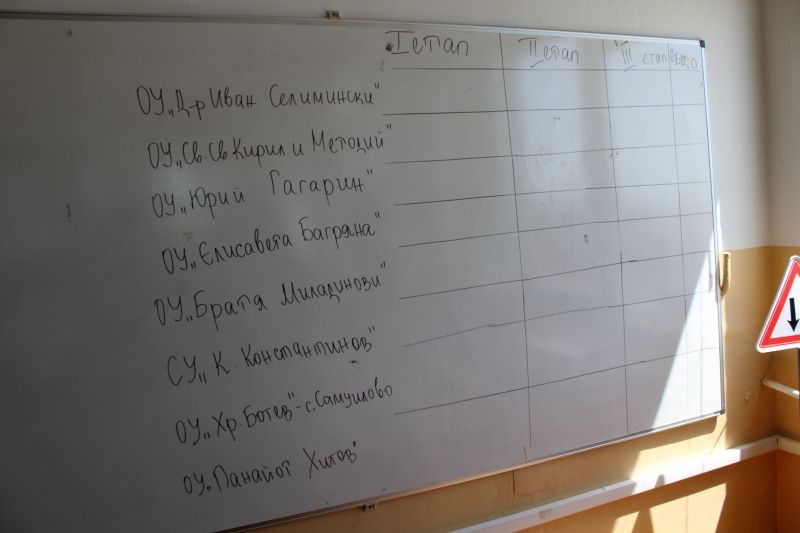 I етап II етап III етап Общо
ОУ „Д-р Иван Селимински"
ОУ „Св. Св Кирил и Методий"
ОУ „Юрий Гагарин"
ОУ „Елисавета Багряна"
ОУ „Братя Миладинови"
СУ „К. Константинов"
ОУ „Хр. Ботев" - с. Самуилово
ОУ „Панайот Хитов"